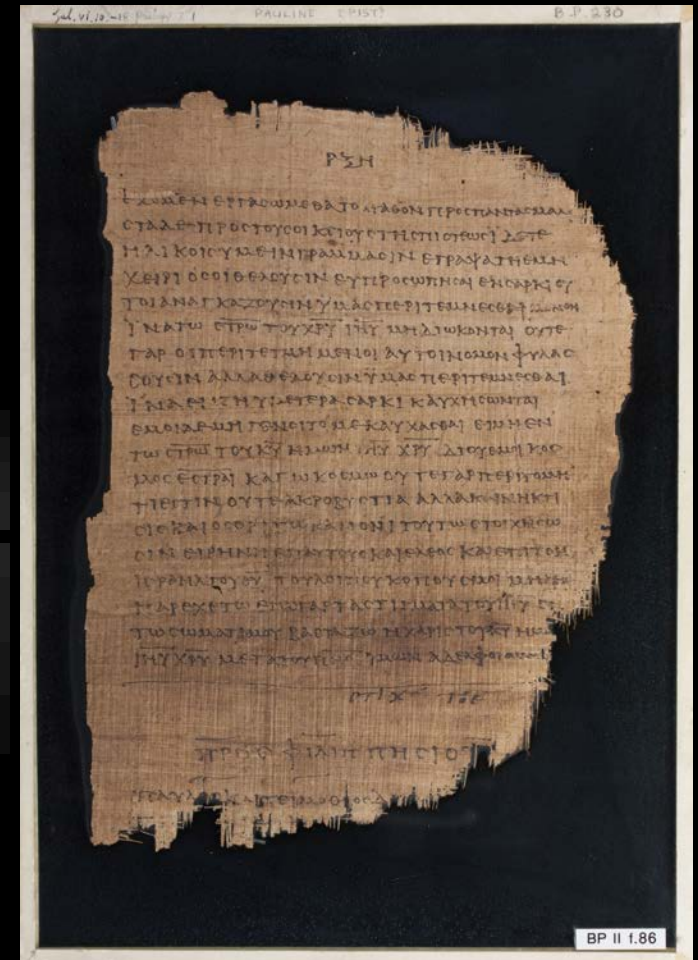 PAULINE EPIST.
B.P. 230
ΡΞΗ
ΕΧΟΜΕΝ ΕΡΓΑϹΩΜΕΘΑ ΤΟ ΑΓΑΘΟΝ ΠΡΟϹ ΠΑΝΤΑϹ ΜΑΛΙ
ϹΤΑ ΔΕ ΠΡΟϹ ΤΟΥϹ ΟΙΚΕΙΟΥϹ ΤΗϹ ΠΙϹΤΕΩϹ ΙΔΕΤΕ
ΗΛΙΚΟΙϹ ΥΜΕΙΝ ΓΡΑΜΜΑϹΙΝ ΕΓΡΑΨΑ ΤΗ ΕΜΗ
ΧΕΙΡΙ ΟϹΟΙ ΘΕΛΟΥϹΙΝ ΕΥΠΡΟϹΩΠΗϹΑΙ ΕΝ ϹΑΡΚΙ ΟΥ
ΤΟΙ ΑΝΑΓΚΑΖΟΥϹΙΝ ΥΜΑϹ ΠΕΡΙΤΕΜΝΕϹΘΑΙ
ΙΝΑ ΤΩ Ϲ̅Τ̅Ρ̅Ω̅ ΤΟΥ Χ̅Ρ̅Υ̅ Ι̅Η̅Υ̅ ΜΗ ΔΙΩΚΩΝΤΑΙ ΟΥΤΕ
ΓΑΡ ΟΙ ΠΕΡΙΤΕΤΜΗΜΕΝΟΙ ΑΥΤΟΙ ΝΟΜΟΝ ΦΥΛΑϹ
ϹΟΥϹΙΝ ΑΛΛΑ ΘΕΛΟΥϹΙΝ ΥΜΑϹ ΠΕΡΙΤΕΜΝΕϹΘΑΙ
ΙΝΑ ΕΝ ΤΗ ΥΜΕΤΕΡΑ ϹΑΡΚΙ ΚΑΥΧΗϹΩΝΤΑΙ
ΕΜΟΙ ΔΕ ΜΗ ΓΕΝΟΙΤΟ ΜΕ ΚΑΥΧΑϹΘΑΙ ΕΙ ΜΗ ΕΝ
ΤΩ Ϲ̅Τ̅Ρ̅Ω̅ ΤΟΥ Κ̅Υ̅ ΗΜΩΝ Ι̅Η̅Υ̅ Χ̅Ρ̅Υ̅ ΔΙ ΟΥ ΕΜΟΙ ΚΟϹ
ΜΟϹ ΕϹΤΡΑΙ ΚΑΓΩ ΚΟϹΜΩ ΟΥΤΕ ΓΑΡ ΠΕΡΙΤΟΜΗ
ΤΙ ΕϹΤΙΝ ΟΥΤΕ ΑΚΡΟΒΥϹΤΙΑ ΑΛΛΑ ΚΑΙΝΗ ΚΤΙ
ϹΙϹ ΚΑΙ ΟϹΟΙ ΤΩ ΚΑΝΟΝΙ ΤΟΥΤΩ ϹΤΟΙΧΗϹΩ
ϹΙΝ ΕΙΡΗΝΗ ΕΠ ΑΥΤΟΥϹ ΚΑΙ ΕΛΕΟϹ ΚΑΙ ΕΠΙ ΤΟΝ
ΙϹΡΑΗΛ ΤΟΥ Θ̅Υ̅ ΤΟΥ ΛΟΙΠΟΥ ΚΟΠΟΥϹ ΜΟΙ
ΠΑΡΕΧΕΤΩ ΕΓΩ ΓΑΡ ΤΑ ϹΤΙΓΜΑΤΑ ΤΟΥ Ι̅Η̅Υ̅
ΤΩ ϹΩΜΑΤΙ ΜΟΥ ΒΑϹΤΑΖΩ Η ΧΑΡΙϹ ΤΟΥ Κ̅Υ̅
Ι̅Η̅Υ̅ Χ̅Ρ̅Υ̅ ΜΕΤΑ ΤΟΥ Π̅Ν̅Ϲ̅ ΥΜΩΝ ΑΔΕΛΦΟΙ ΑΜΗΝ
ϹΤΙΧ ΤΟΕ
ΠΡΟϹ ΦΙΛΙΠΠΗϹΙΟΥϹ
ΠΑΥΛΟϹ ΚΑΙ ΤΕΙΜΟΘΕΟϹ
BP II f.86